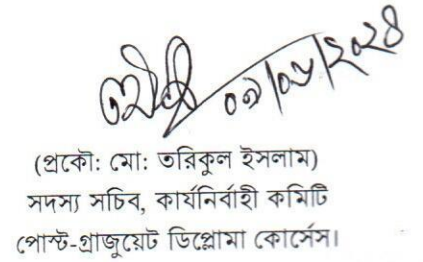 ০৯/০৬/২০২৪
(প্রকৌ: মো: তরিকুল ইসলাম)
সদস্য সচিব, কার্যনির্বাহী কমিটি
পোস্ট-গ্রাজুয়েট ডিপ্লোমা কোর্সেস।